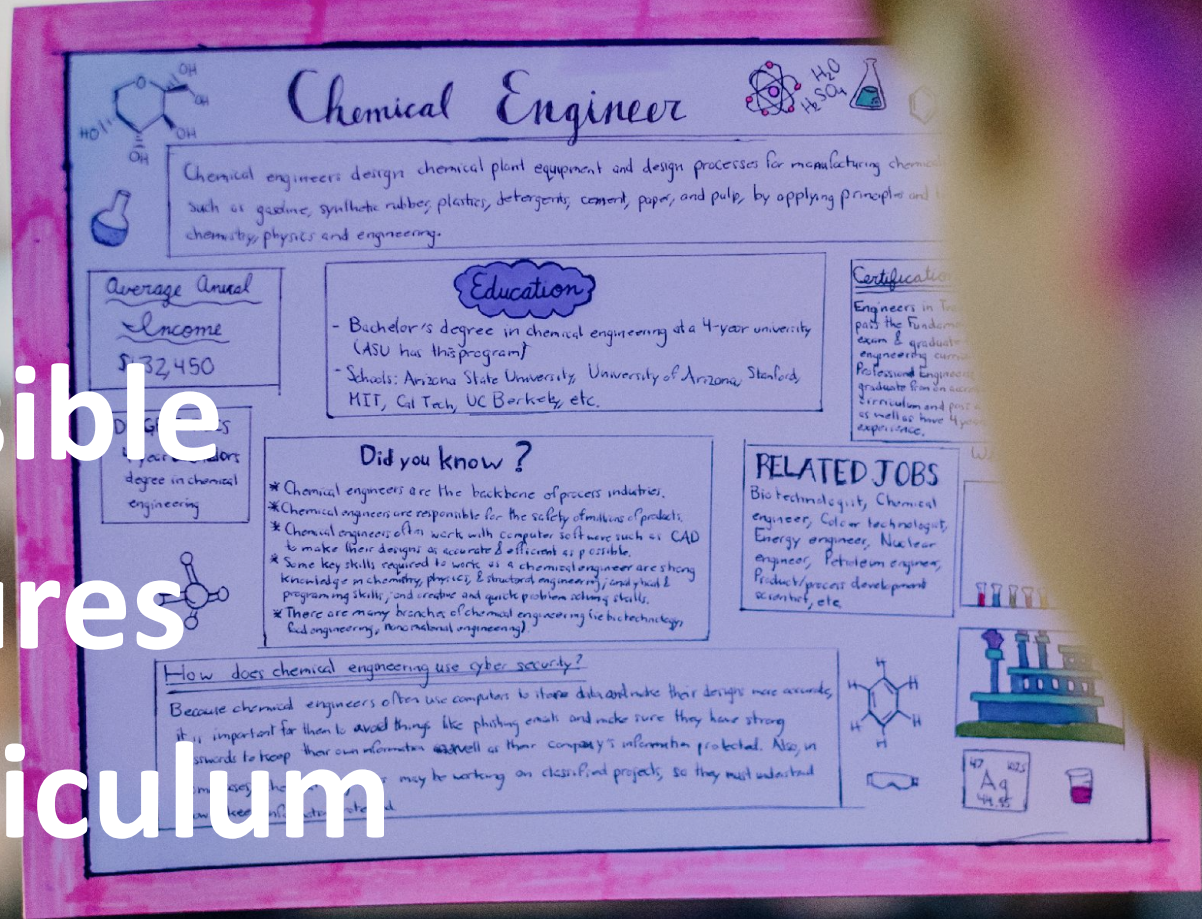 Chemical Engineer
OH
OH
HO
OH
OH
H2O
H2SO4
Chemical engineers design chemical plant equipment and design processes for manufacturing
such as gasoline, synthetic rubber, plastics, detergents, cement, paper, and pulp, by applying principles and
chemistry, physics and engineering.
Average Anual
Income
$132,450
Education
- Bachelor's degree in chemical engineering at a 4-year university
(ASU has this program)
- Schools: Arizona State University, University of Arizona, Stanford,
MIT, Cal Tech, UC Berkely, etc.
Engineers in
pass the
exam & graduate
engineering
Professional
graduate from an
curriculum and
as well as have 4
experience.
degree in chemical
engineering
Did you know?
* Chemical engineers are the backbone of process industries.
* Chemical engineers are responsible for the safety of millions of products.
* Chemical engineers often work with computer software such as CAD
to make their designs as accurate & efficient as possible.
* Some key skills required to work as a chemical engineer are strong
knowledge in chemistry, physics, & structural engineering, analytical &
programing skills, and creative and quick problem solving skills.
* There are many branches of chemical engineering (ie biotechnology,
food engineering, engineering)
RELATED JOBS
Biotechnologist, Chemical
engineer, Colour technologist,
Energy engineer, Nuclear
engineer, Petroleum engineer,
Product/process development
scientist, etc.
How does chemical engineering use cyber security?
Because chemical engineers often use computers to store data and make their designs more accurate,
it is important for them to avoid things like phishing emails and make sure they have strong
to keep their own information as well as their company's information protected. Also, in
may be working on classified projects, so they must understand
H
H
H
H
H
H
47
Ag
sible
ures
iculum